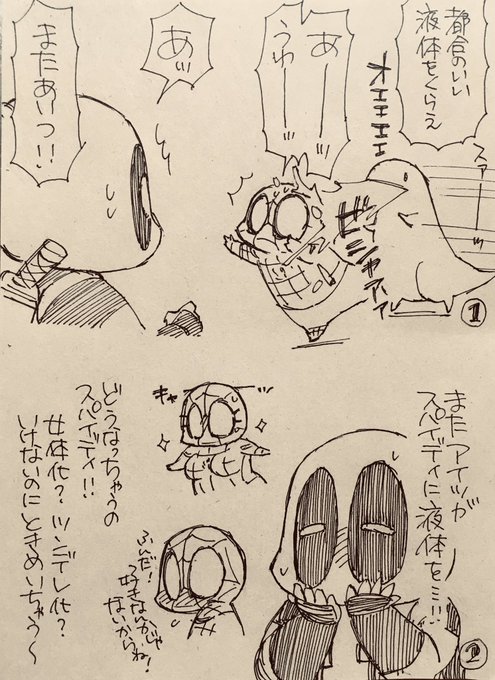 都合のいい
液体をくらえ
オエエエエ
スァーッ
あーーッ
うわーーッ
ビシャァァァ
あッ
またあいつ!!
①
またアイツが
スパイディに液体を…!!
キャーッ
どうなっちゃうの
スパイディ!!
女体化?ツンデレ化?
いけないのにときめいちゃう〜
ふんだ!
好きなんかじゃ
ないからね!
②